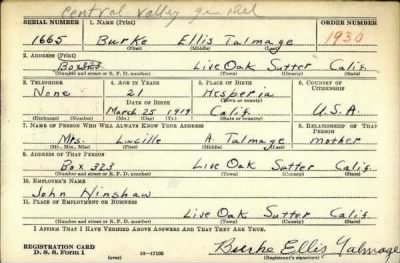 Central Valley gen del
SERIAL NUMBER 1. NAME (Print) ORDER NUMBER
1665 Burke Ellis Talmage 1930
(First) (Middle) (Last)
2. ADDRESS (Print)
Box 323 Live Oak Sutter Calif.
(Number and street or R. F. D. number) (Town) (County) (State)
3. TELEPHONE 4. AGE IN YEARS 5. PLACE OF BIRTH 6. COUNTRY OF CITIZENSHIP
None 21 Hesperia
DATE OF BIRTH (Town or county)
March 25 1919 Calif. U.S.A.
(Exchange) (Number) (Mo.) (Day) (Yr.) (State or country)
7. NAME OF PERSON WHO WILL ALWAYS KNOW YOUR ADDRESS 8. RELATIONSHIP OF THAT PERSON
Mrs. Lucille A. Talmage mother
(Mr., Mrs., Miss) (First) (Middle) (Last)
9. ADDRESS OF THAT PERSON
Box 323 Live Oak Sutter Calif.
(Number and street or R. F. D. number) (Town) (County) (State)
10. EMPLOYER'S NAME
John Hinshaw
11. PLACE OF EMPLOYMENT OR BUSINESS
Live Oak Sutter Calif.
(Number and street or R. F. D. number) (Town) (County) (State)
I AFFIRM THAT I HAVE VERIFIED ABOVE ANSWERS AND THAT THEY ARE TRUE.
REGISTRATION CARD
D. S. S. Form 1 (over) Burke Ellis Talmage
(Registrant's signature)